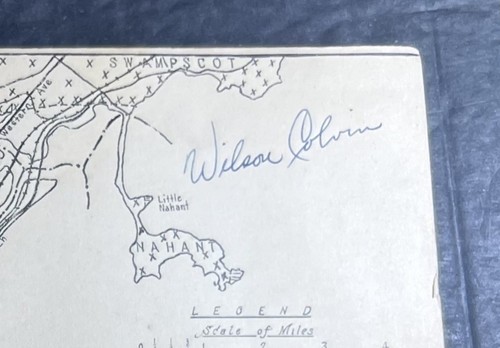 SWAMPSCOT
Western Ave
Wilson Colvin
Little
Nahant
NAHANT
LEGEND
Scale of Miles
0 1 2 3 4